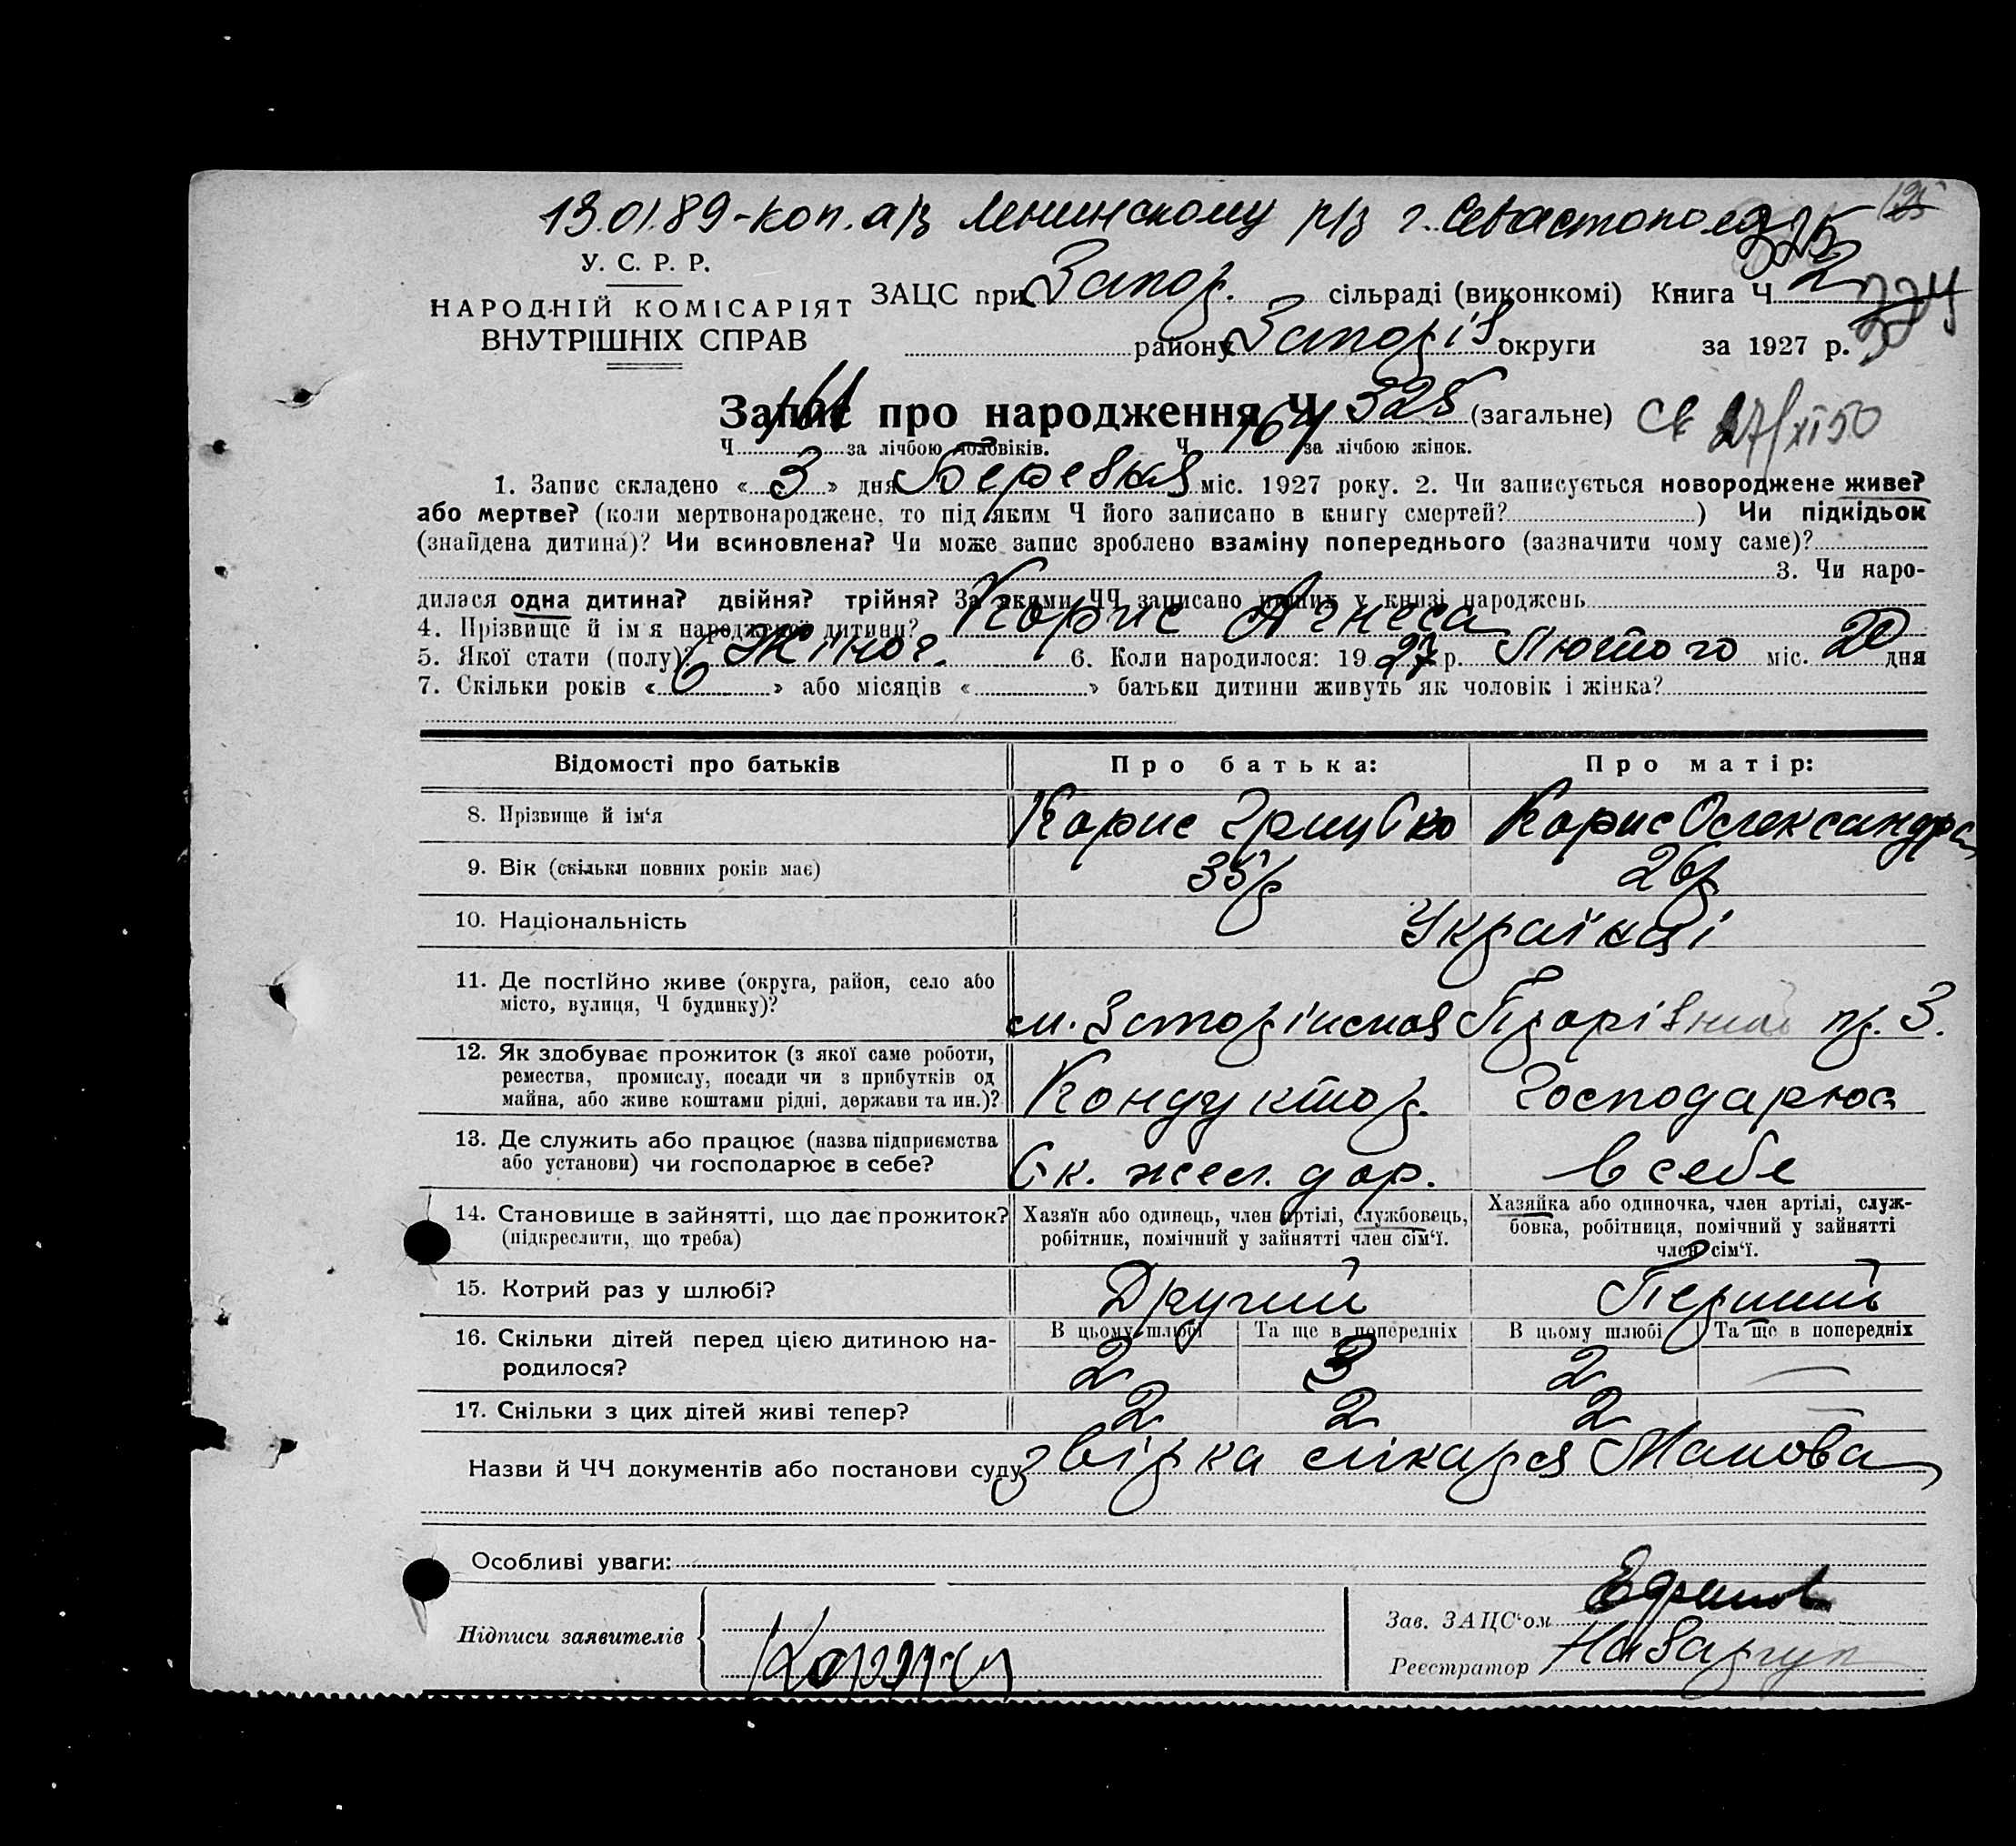 13.01.89-коп. а/з Ленинскому р/з г. Севастополя 325
У. С. Р. Р.
НАРОДНІЙ КОМІСАРІЯТ
ВНУТРІШНІХ СПРАВ
ЗАЦС при Запор. сільраді (виконкомі) Книга Ч 2
району Запоріз. округи за 1927 р.
Запис про народження Ч 325 (загальне) Св 27/XI 50
Ч 161 за лічбою чоловіків. Ч 164 за лічбою жінок.
1. Запис складено « 3 » дня Березня міс. 1927 року. 2. Чи записується новороджене живе?
або мертве? (коли мертвонароджене, то під яким Ч його записано в книгу смертей? ) Чи підкідьок
(знайдена дитина)? Чи всиновлена? Чи може запис зроблено взаміну попереднього (зазначити чому саме)?
3. Чи наро-
дилася одна дитина? двійня? трійня? За якими ЧЧ записано инших у книзі народжень
4. Прізвище й ім'я народженої дитини? Корис Агнеса
5. Якої стати (полу)? Жіноч. 6. Коли народилося: 19 27 р. Лютого міс. 20 дня
7. Скільки років « 6 » або місяців « » батьки дитини живуть як чоловік і жінка?
Відомості про батьків Про батька: Про матір:
8. Прізвище й ім'я Корис Грицько Корис Олександра
9. Вік (скільки повних років має) 35 р 26 р
10. Національність Українці
11. Де постІйно живе (округа, район, село або
місто, вулиця, Ч будинку)? пр. 3.
12. Як здобуває прожиток (з якої саме роботи,
ремества, промислу, посади чи з прибутків од
майна, або живе коштами рідні, держави та ин.)? Кондуктор. Господарює
13. Де служить або працює (назва підприємства
або установи) чи господарює в себе? Ек. жел. дор. в себе
14. Становище в зайнятті, що дає прожиток?
(підкреслити, що треба)
Хазяїн або одинець, член артілі, службовець,
робітник, помічний у зайнятті член сім'ї.
Хазяйка або одиночка, член артілі, служ-
бовка, робітниця, помічний у зайнятті
член сім'ї.
15. Котрий раз у шлюбі? Другий Перший
16. Скільки дітей перед цією дитиною на-
родилося?
В цьому шлюбі Та ще в попередніх В цьому шлюбі Та ще в попередніх
2 3 2 —
17. Скільки з цих дітей живі тепер? 2 2 2 —
Назви й ЧЧ документів або постанови суду звірка лікаря
Особливі уваги:
Підписи заявителів
Зав. ЗАЦС'ом
Реєстратор